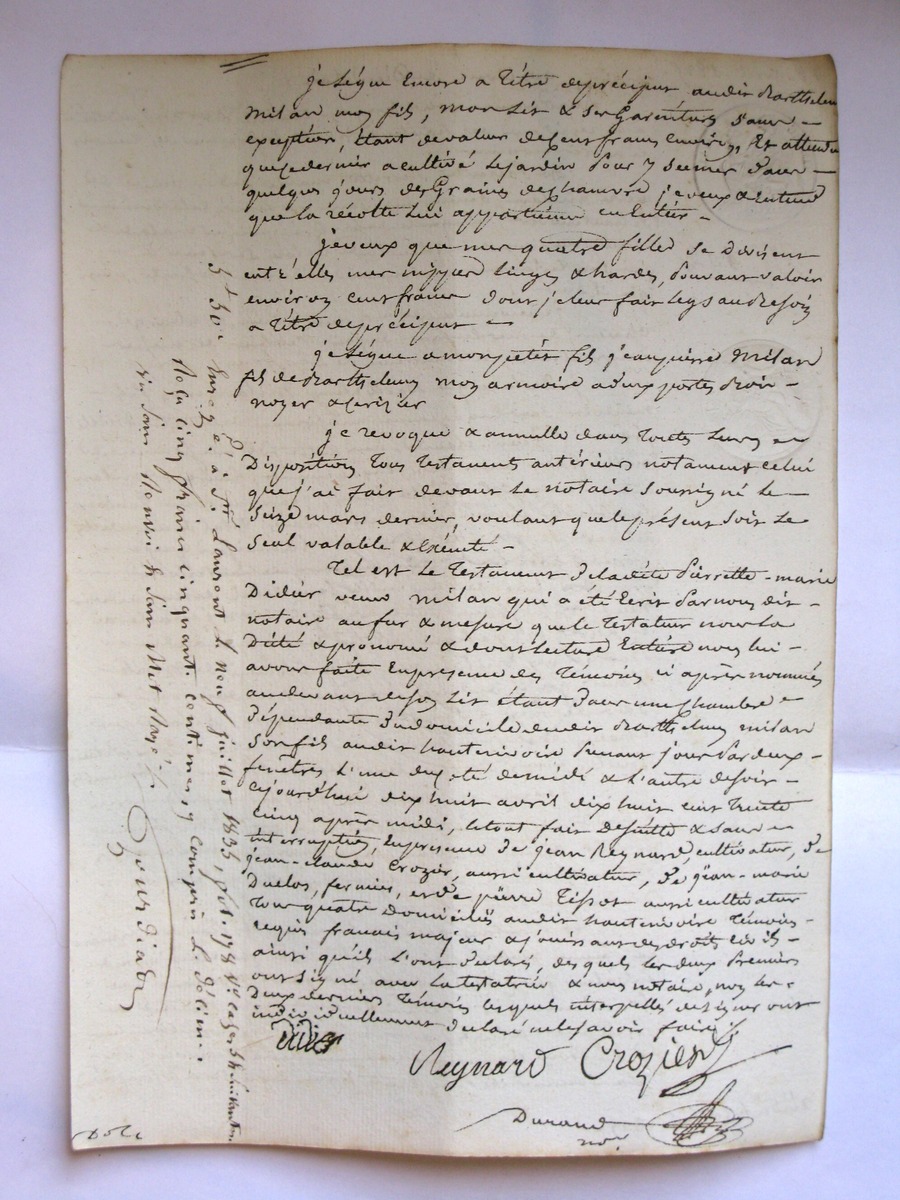 je Lègue Encore a Titre de préciput audit Barthelemy
Milan mon fils, mon Lit & ses Garnitures sans
exception, étant de valeur de Cent francs Environ, Et attendu
que ce dernier a cultivé Le jardin Pour y semer d'avec
quelques jours des Graines de chanvre je veux & entend
que la récolte Lui appartienne en Entier
je veux que mes quatre filles se divisent
entr'elles mes nippes Linges & hardes, Pouvant valoir
environ cent francs dont je leur fais Legs au Besoin
a Titre de préciput
je Lègue a mon petit fils jean pierre Milan
fils de Barthelemy mon armoire a deux portes Bois
noyer & cerizier
je revoque & annulle dans Toutes Leurs
Dispositions Tous Testaments antérieurs notament celui
que j'ai fait devant Le notaire soussigné Le
Seize mars dernier, voulant que le présent soit Le
seul valable & Exécuté
Tel est Le Testament de la dite Pierrette-marie
Didier veuve Milan qui a été Ecrit Par nous dit
notaire au fur & mesure que la Testatrice nous L'a
Dicté & prononcé & dont Lecture Entière nous lui
avons faite En presence des Témoins ci après nommés
au devant de son Lit étant dans une Chambre
Dépendante du domicile dudit Barthelemy milan
son fils audit hauterivoire Prenant jour Par deux
fenêtres L'une du côté de midi & L'autre de soir
aujourdhui dix huit avril dix huit cent Trente
Cinq après midi, le tout fait de suitte & sans
interruption, En presence de jean Reynard, cultivateur, de
jean-claude Crozier, aussi cultivateur, de jean-marie
Duclos, fermier, et de pierre Tissot aussi cultivateur
Tous quatre Domiciliés audit hauterivoire Témoins
requis francais majeurs & jouissant des droits civils
ainsi qu'ils L'ont déclaré, des quels les deux Premiers
ont signé avec La testatrice & nous notaire, non les
Deux derniers Témoins lesquels interpellés de signer ont
individuellement déclaré ne le savoir faire
Didier
Reynard Crozier
Durand
nore
Enregé. à St. Laurent le neuf juillet 1835, fol. 178
Reçu cinq francs cinquante centimes, y compris le décime